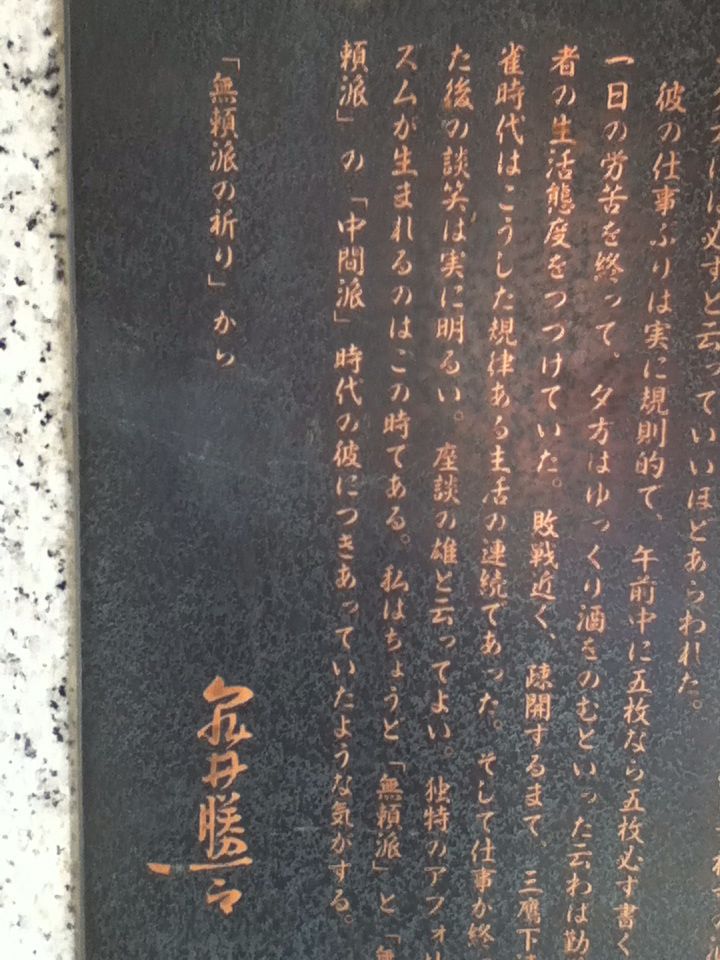 は必ずと云っていいほどあらわれた。
彼の仕事ぶりは実に規則的で、午前中に五枚なら五枚必ず書く
一日の労苦を終って、夕方はゆっくり酒をのむといった云わば勤
者の生活態度をつづけていた。敗戦近く、疎開するまで、三鷹下連
雀時代はこうした規律ある生活の連続であった。そして仕事が終
た後の談笑は実に明るい。座談の雄と云ってよい。独特のアフォリ
スムが生まれるのはこの時である。私はちょうど「無頼派」と「無
頼派」の「中間派」時代の彼につきあっていたような気がする。
「無頼派の祈り」から
亀井勝一郎